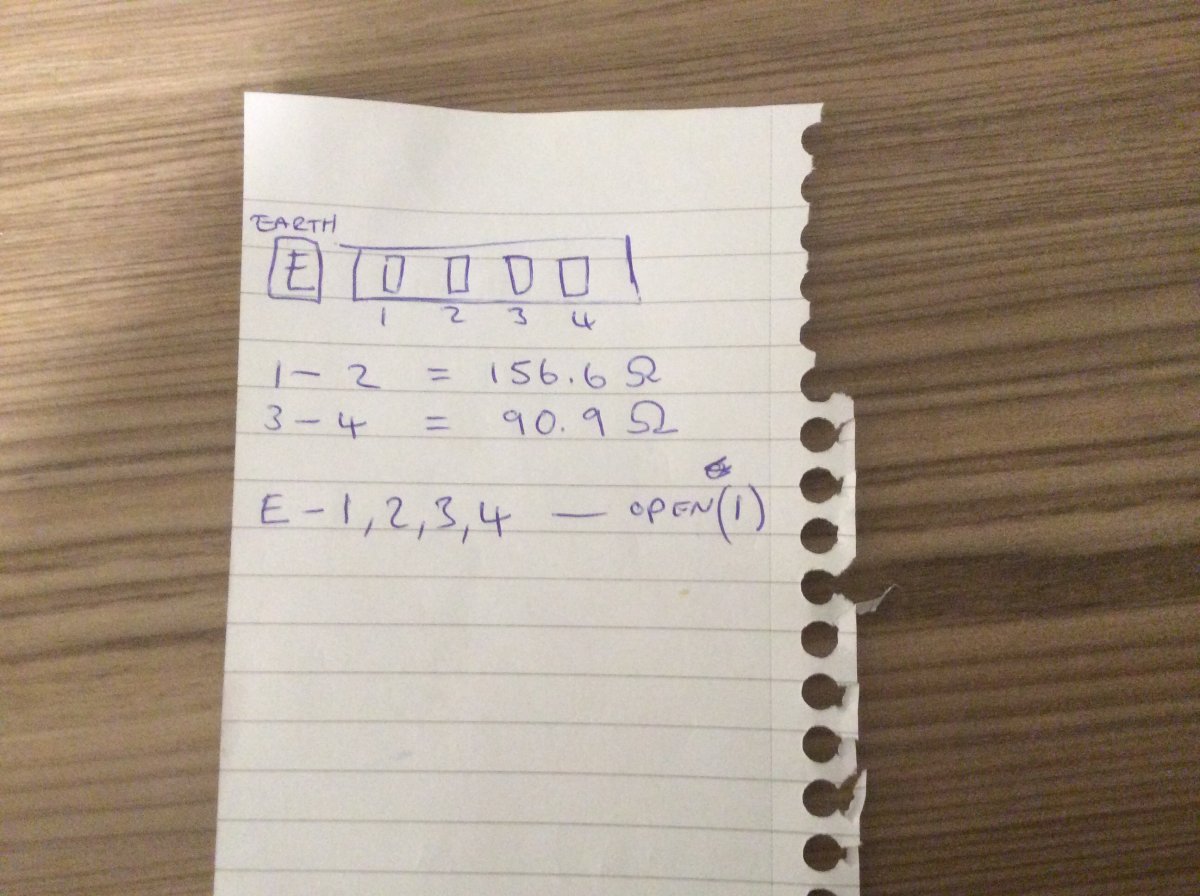 EARTH
E
1 2 3 4
1 - 2 = 156.6 Ω
3 - 4 = 90.9 Ω
E - 1, 2, 3, 4 — OPEN (1)